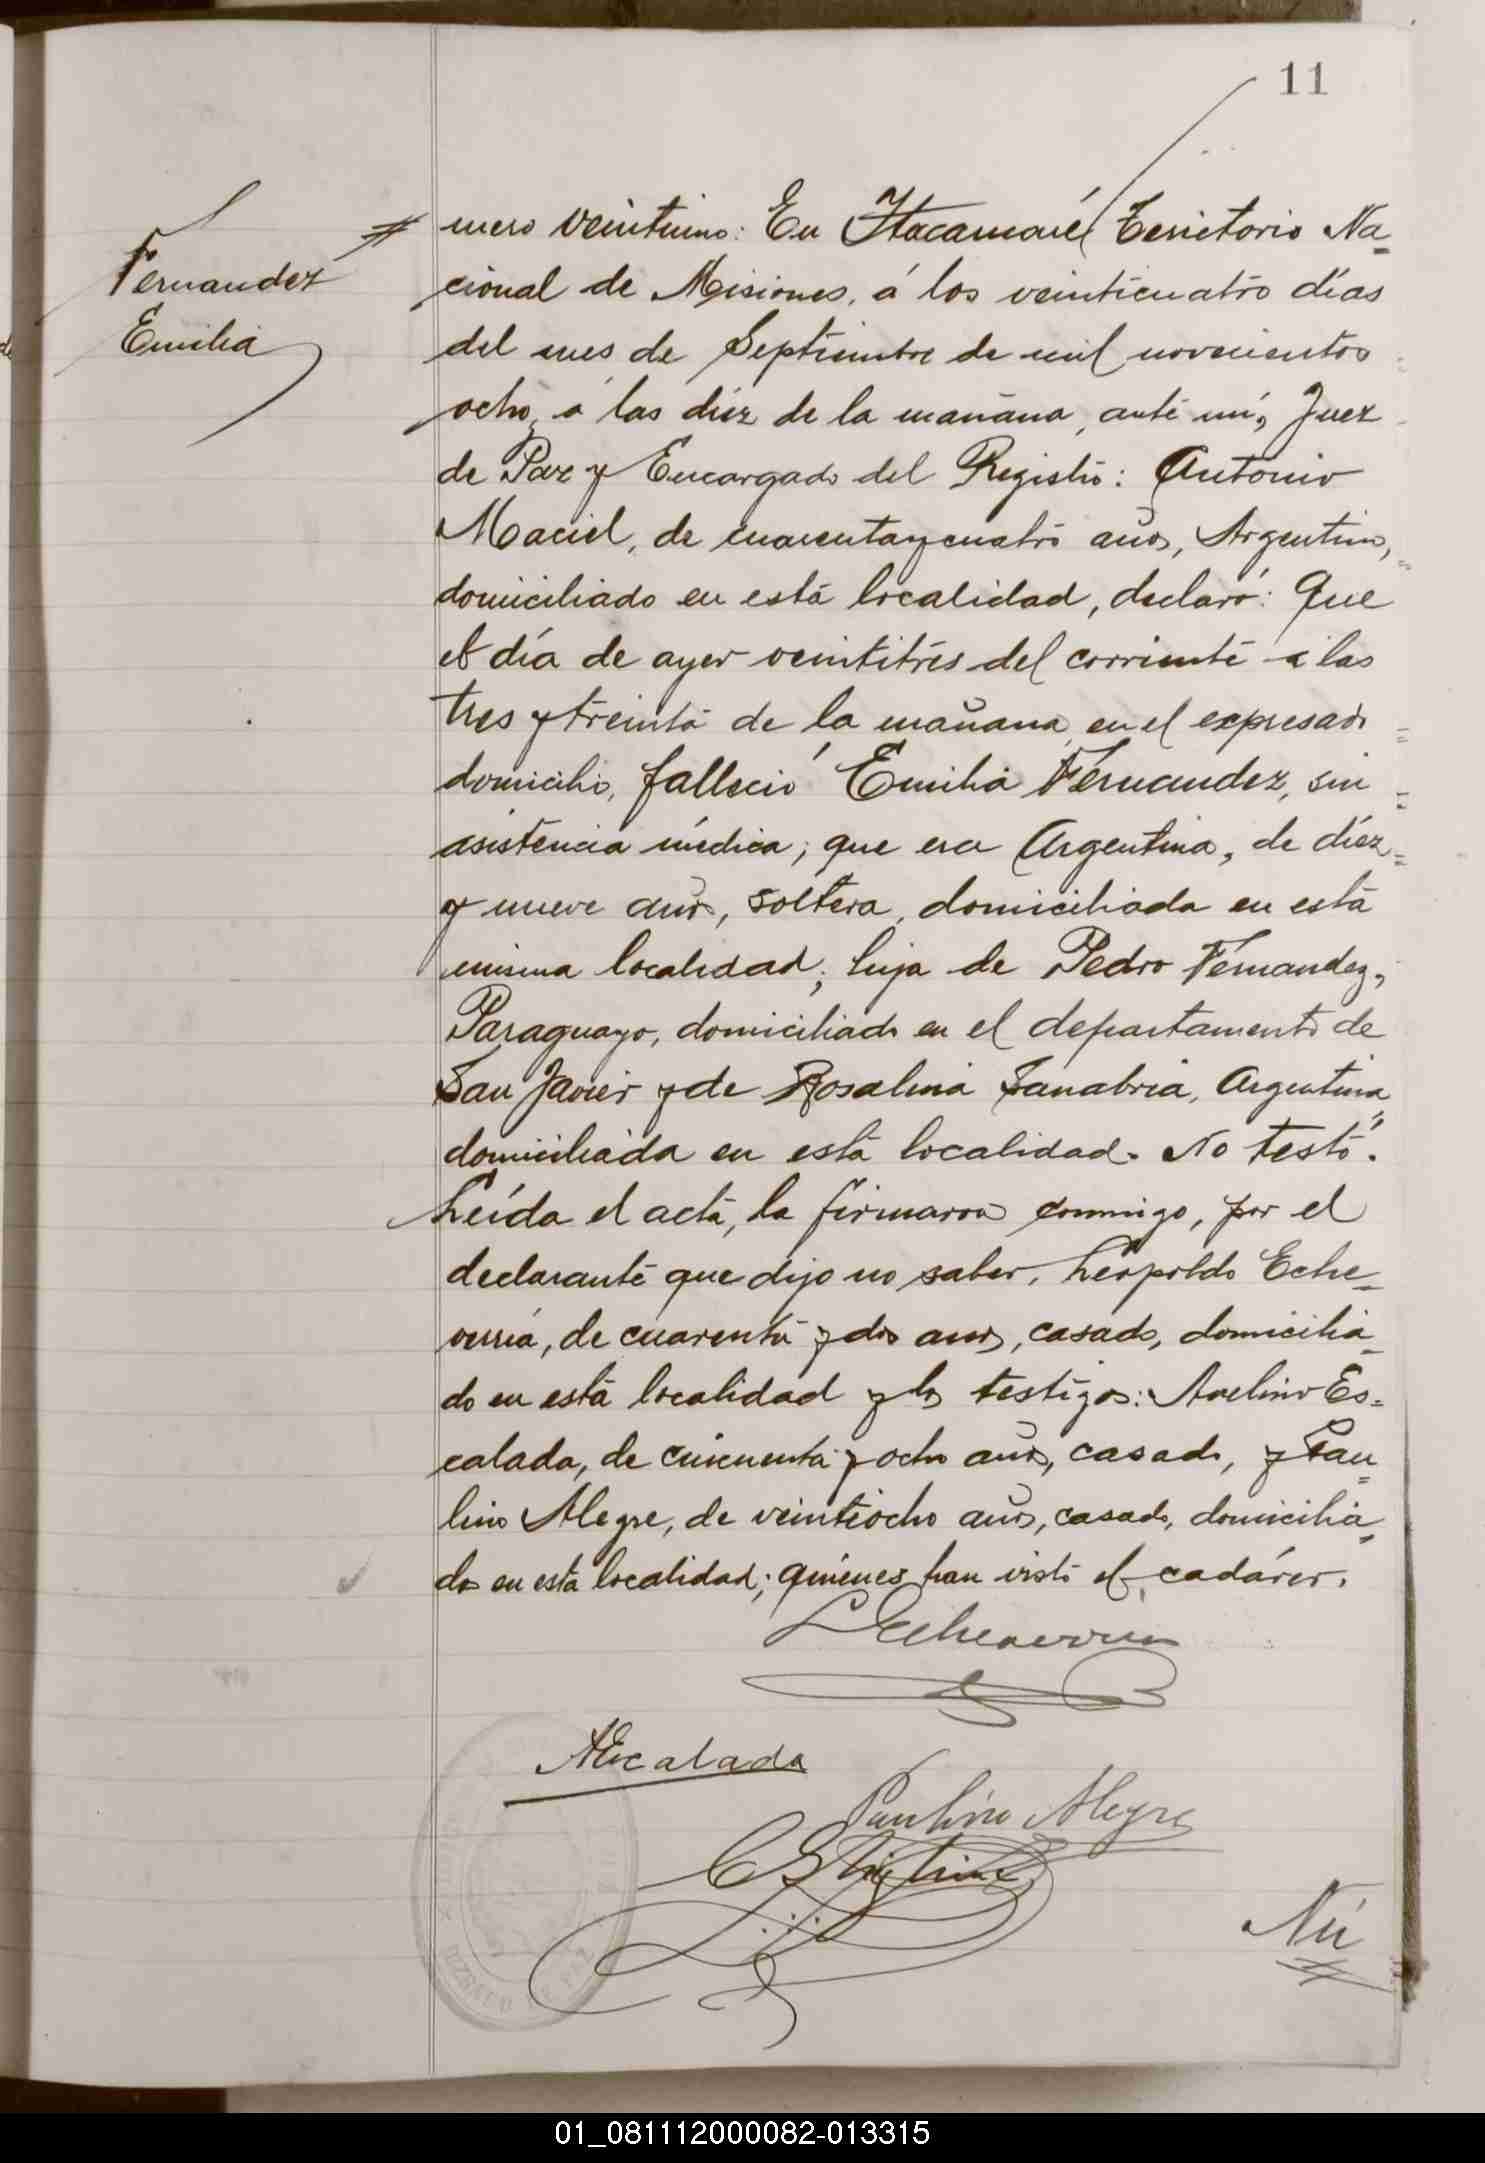 11
Fernandez
Emilia
mero veintiuno: En Itacaruaré Territorio Na=
cional de Misiones, á los veinticuatro días
del mes de Septiembre de mil novecientos
ocho, á las diez de la mañana, ante mí, Juez
de Paz y Encargado del Registro: Antonio
Maciel, de cuarenta y cuatro años, Argentino,
domiciliado en esta localidad, declaró: Que
el día de ayer veintitrés del corriente á las
tres y treinta de la mañana en el expresado
domicilio, falleció Emilia Fernandez, sin
asistencia médica; que era Argentina, de diez
y nueve años, soltera, domiciliada en esta
misma localidad; hija de Pedro Fernandez,
Paraguayo, domiciliado en el departamento de
San Javier y de Rosalina Sanabria, Argentina
domiciliada en esta localidad. No testó.
Leída el acta, la firmaron conmigo, por el
declarante que dijo no saber, Leopoldo Eche=
verría, de cuarenta y dos años, casado, domicilia=
do en esta localidad y los testigos: Avelino Es=
calada, de cincuenta y ocho años, casado, y Pau=
lino Alegre, de veintiocho años, casado, domicilia=
dos en esta localidad; quienes han visto el cadáver.
LEcheverria
AEscalada
Paulino Alegre
Nú
01_081112000082-013315